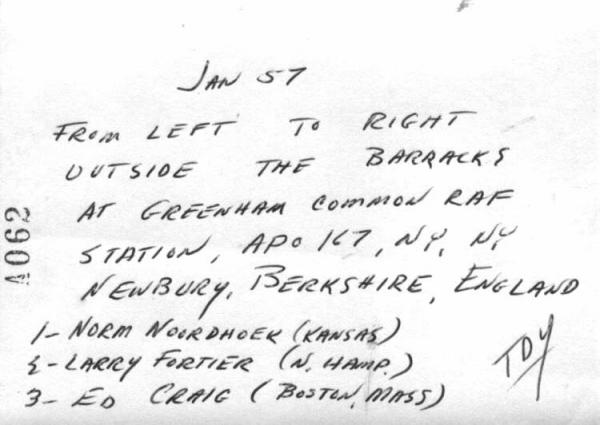 JAN 57
FROM LEFT TO RIGHT
OUTSIDE THE BARRACKS
AT GREENHAM COMMON RAF
STATION, APO 167, NY, NY
NEWBURY, BERKSHIRE, ENGLAND
1- NORM NOORDHOEK (KANSAS)
2- LARRY FORTIER (N. HAMP.)
3- ED CRAIG (BOSTON, MASS)
TDY
A062